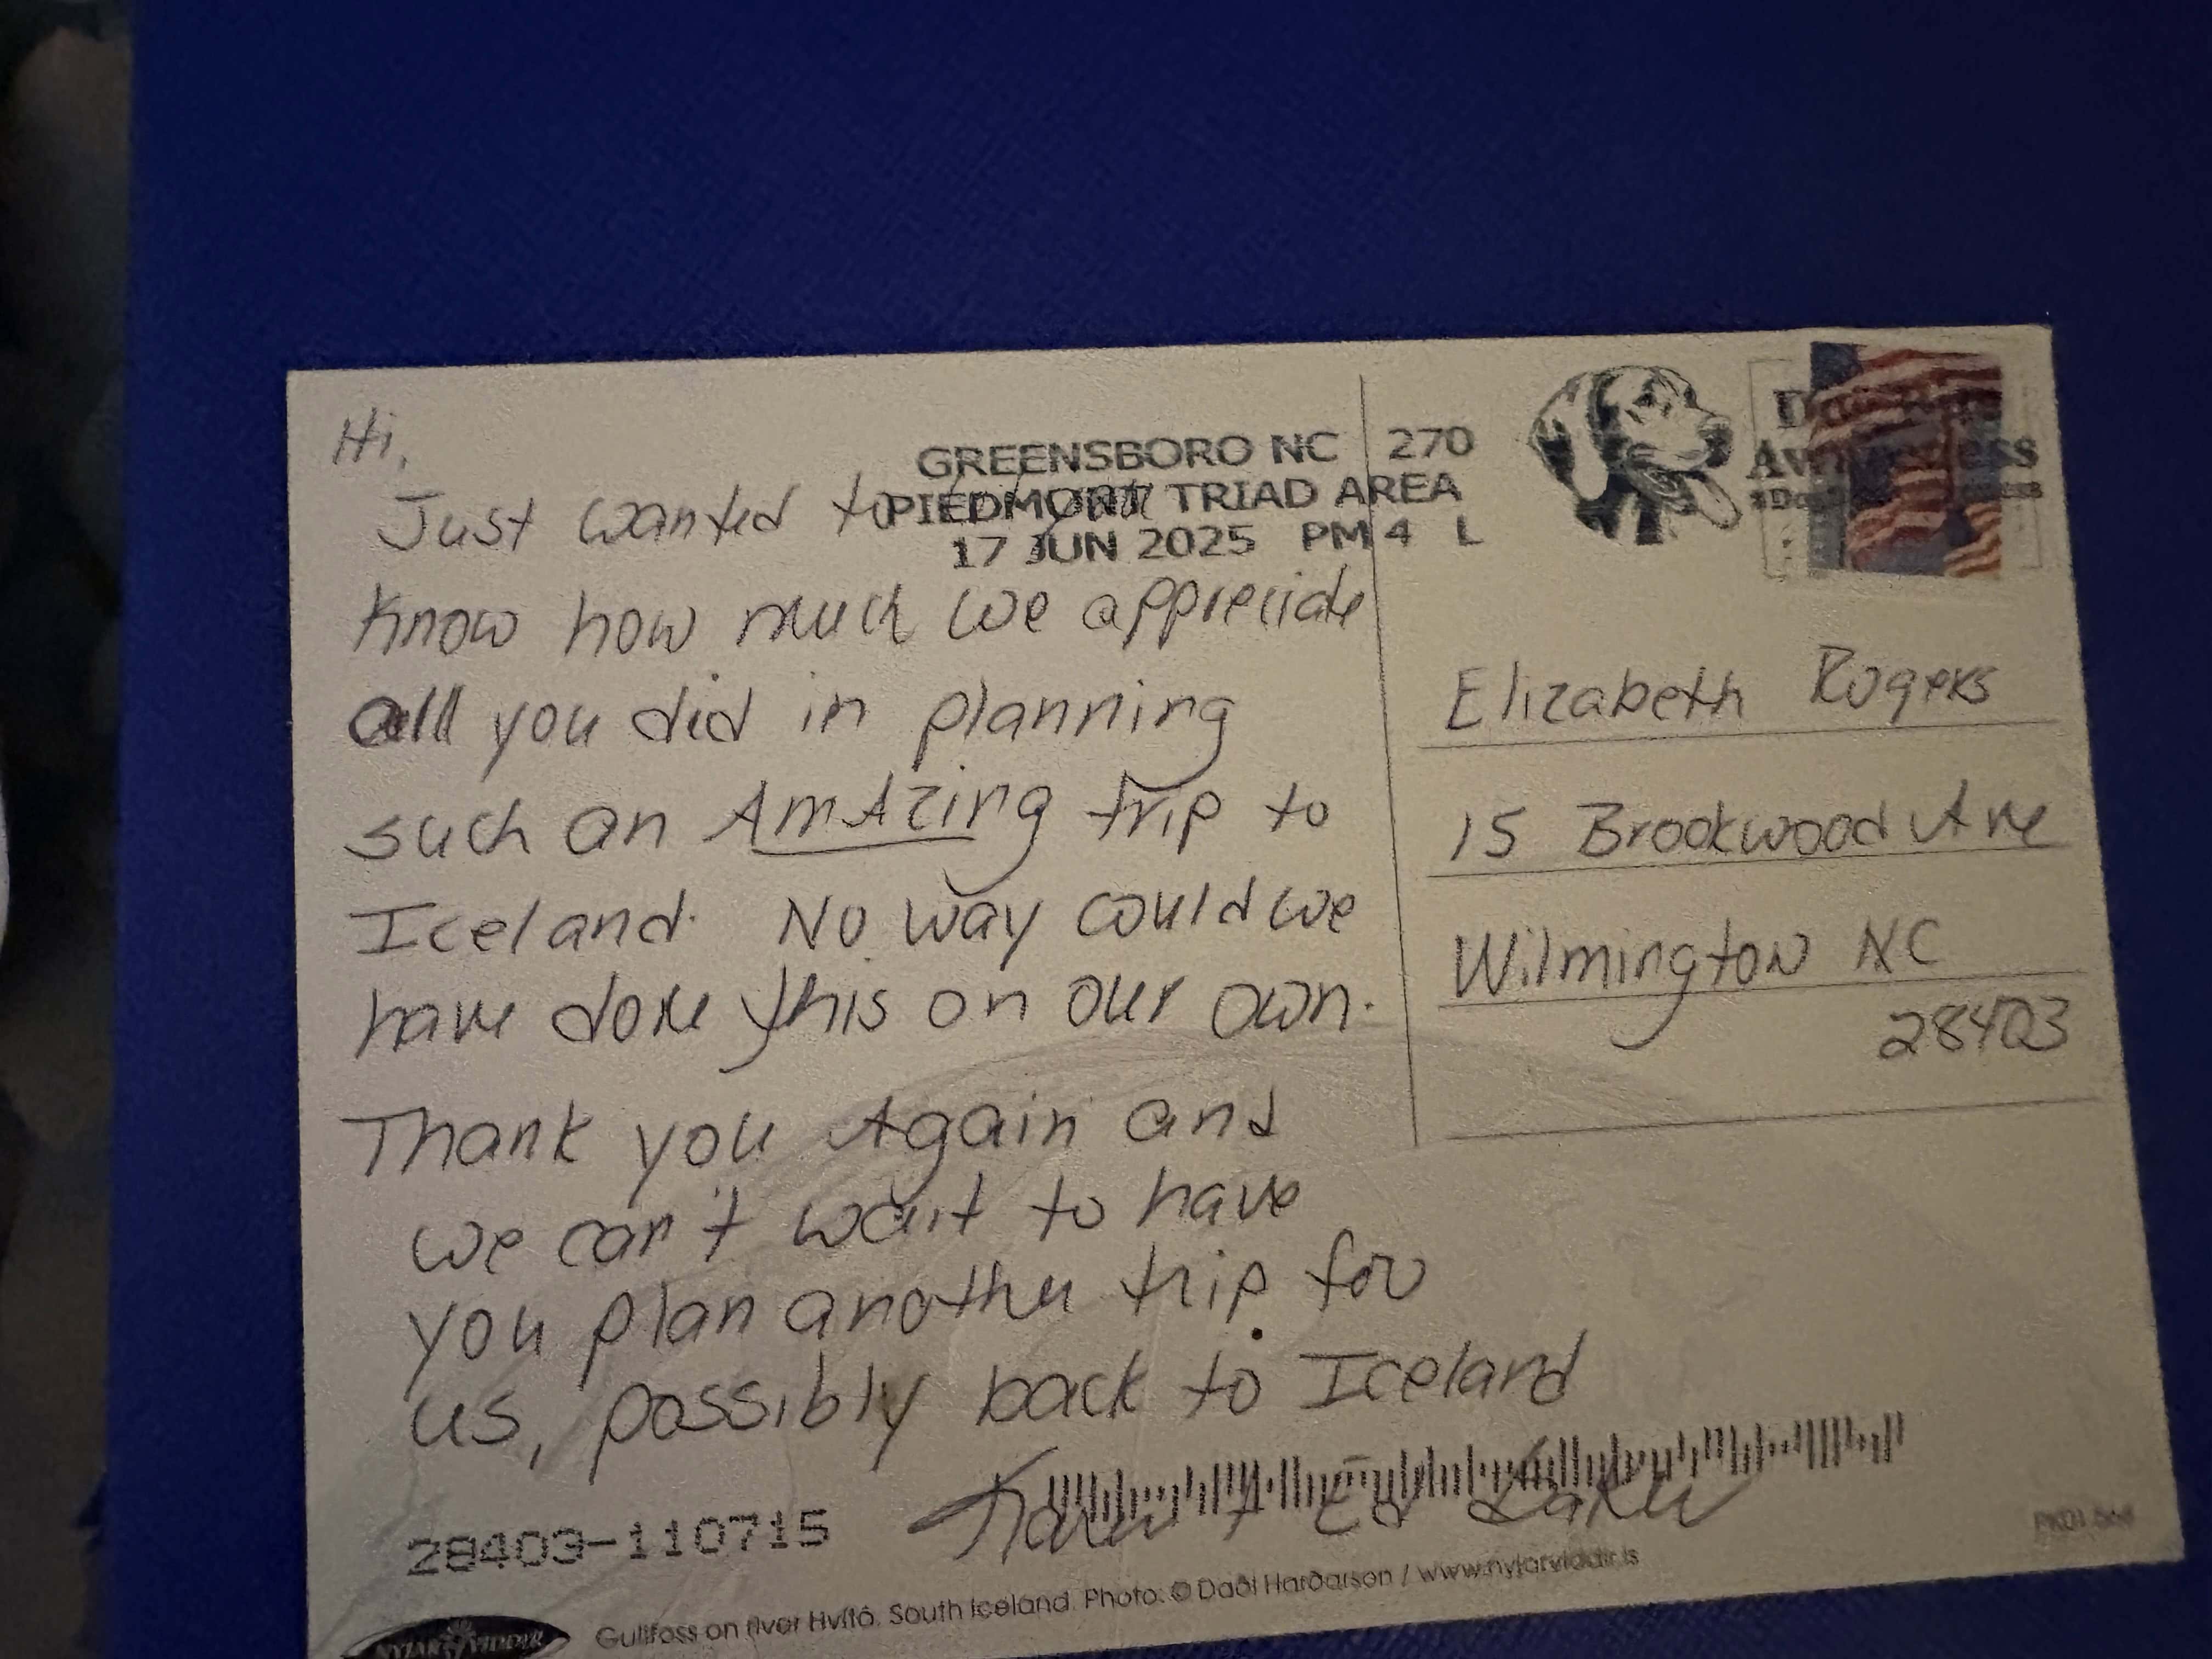 Hi,
Just wanted to let you
know how much we appreciate
all you did in planning
such an AmAzing trip to
Iceland. No way could we
have done this on our own.
Thank you Again and
we can't wait to have
you plan another trip for
us, possibly back to Iceland
Karen + Ed
GREENSBORO NC 270
PIEDMONT TRIAD AREA
17 JUN 2025 PM 4 L
Dog Bite
Awareness
Elizabeth Rogers
15 Brookwood Ave
Wilmington NC
28403
28403-110715
NYJAR VIDDIR
Gullfoss on river Hvítá, South Iceland. Photo: © Daði Harðarson / www.nyjarviddir.is